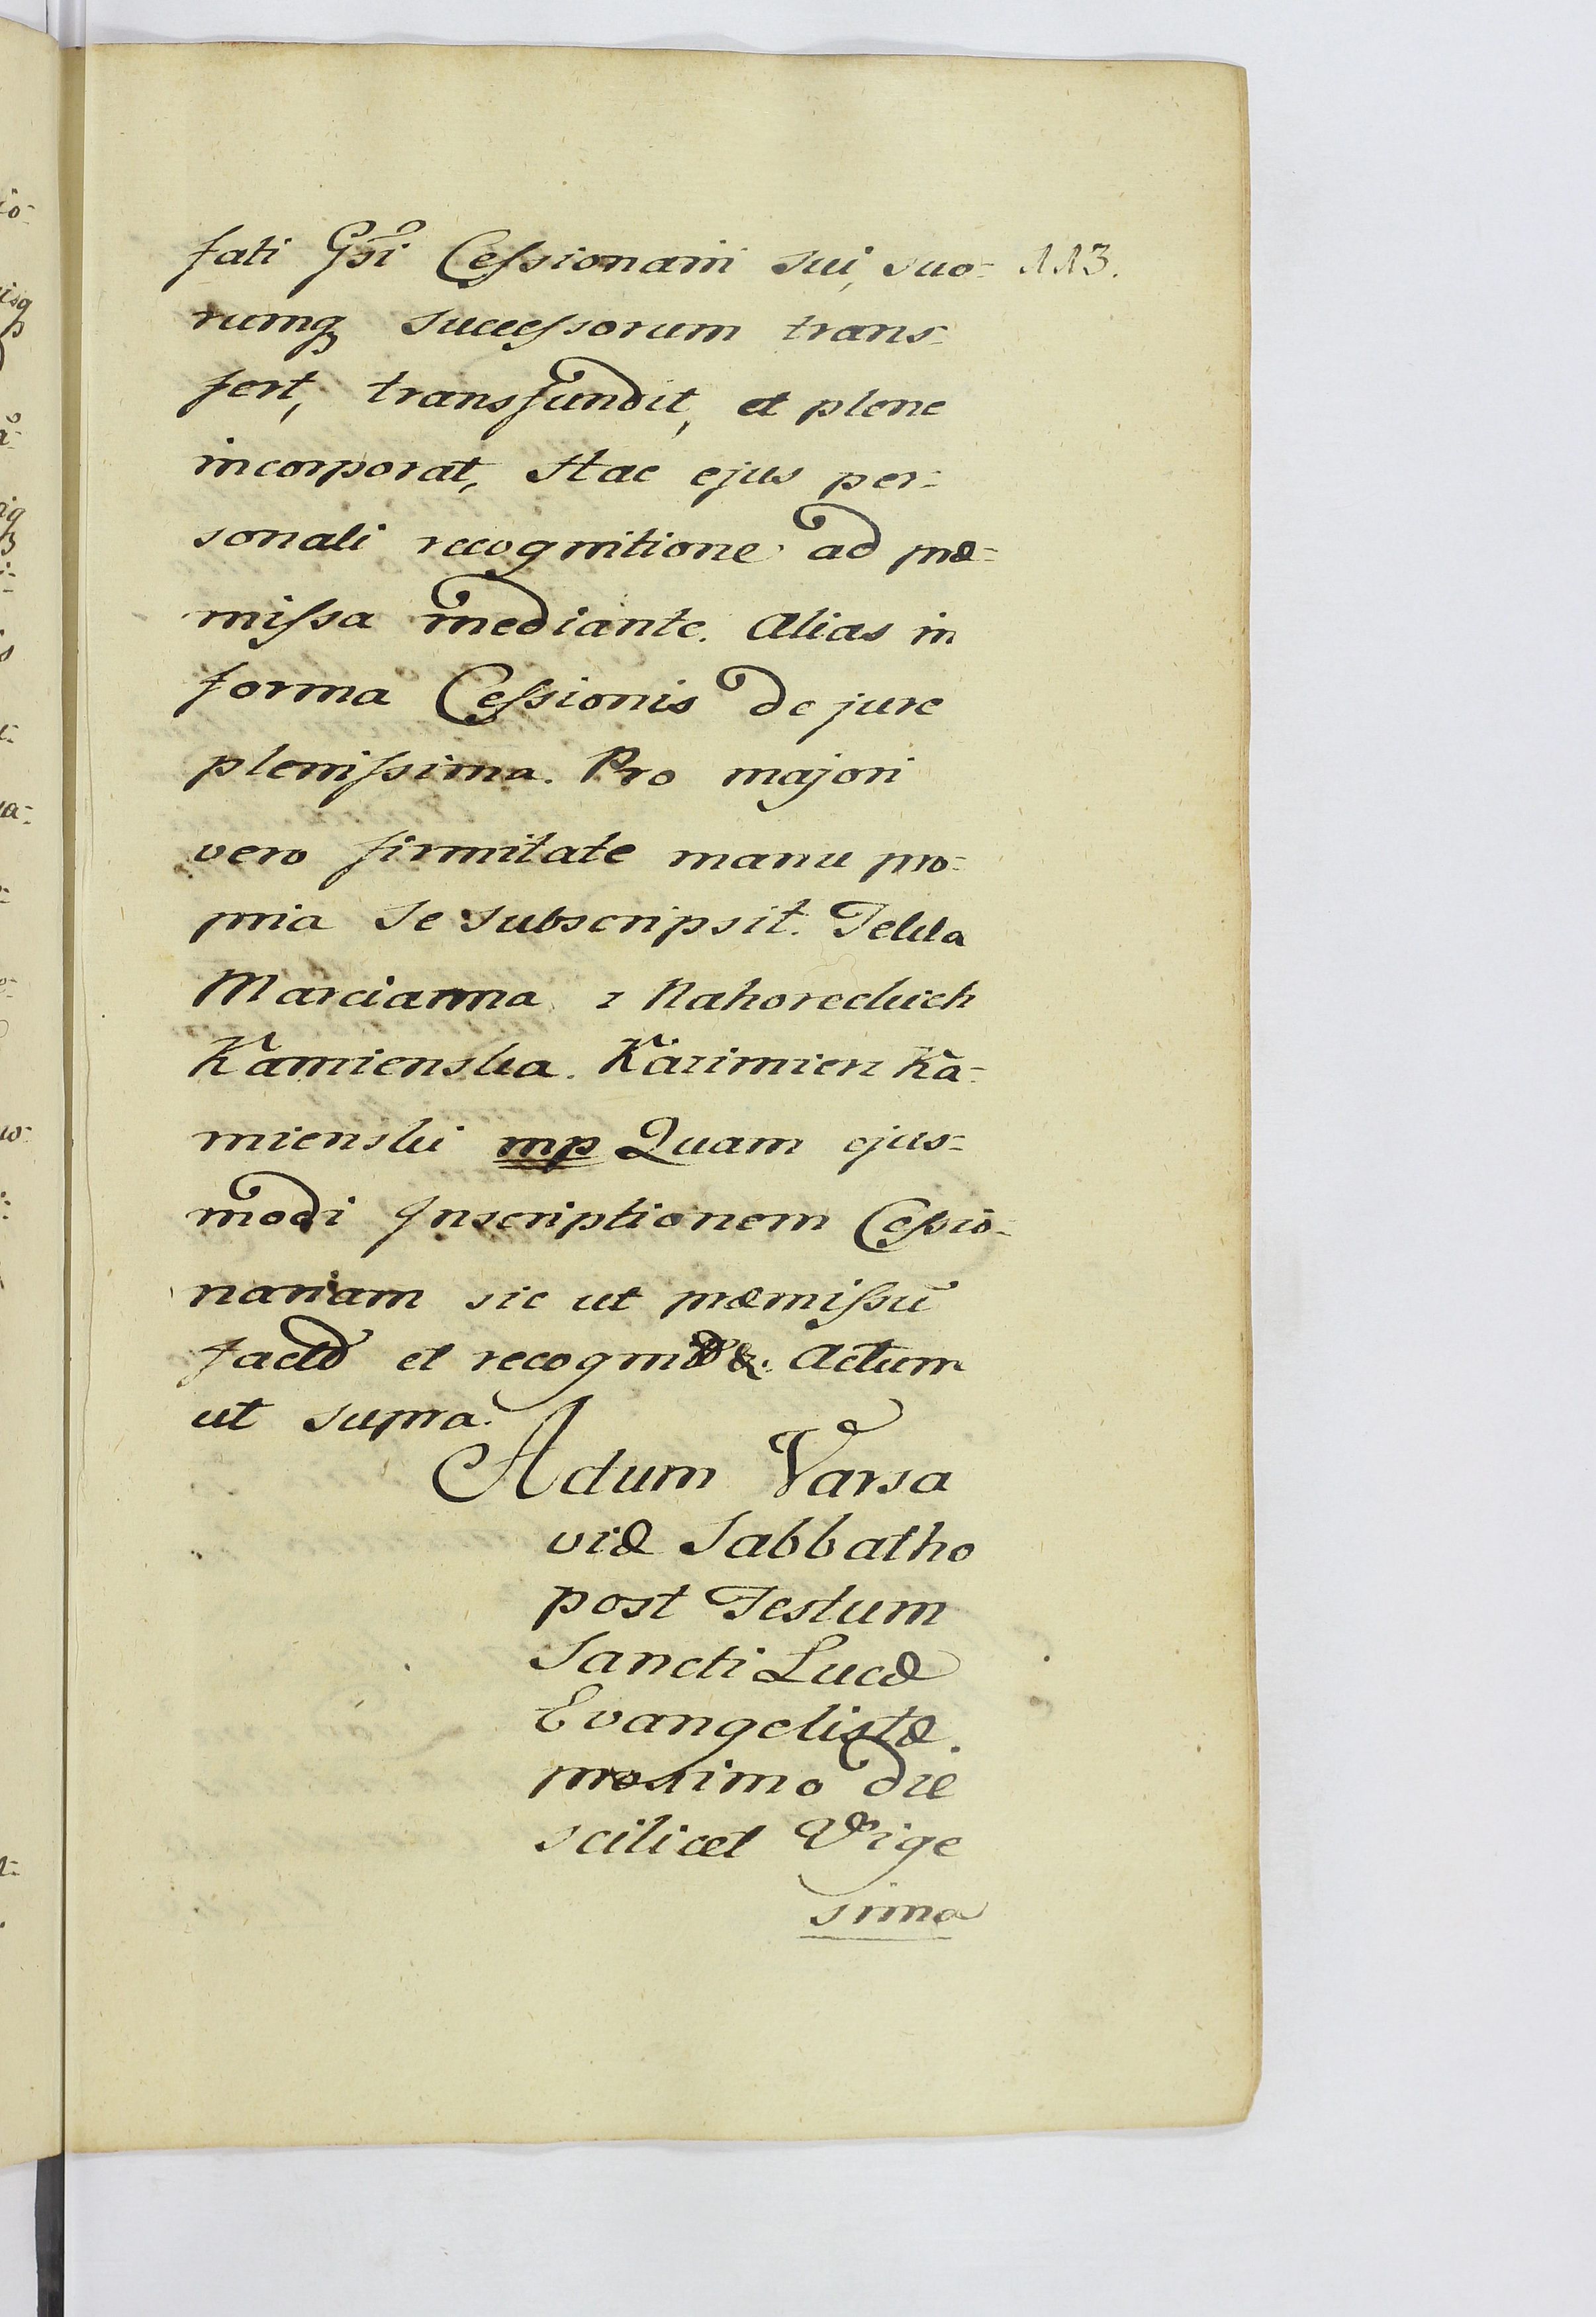 fati Gsi Cessionarii sui, suo- 113.
rumq3 successorum trans-
fert, transfundit, et plene
incorporat, Hac ejus per-
sonali recognitione ad præ-
missa mediante. Alias in
forma Cessionis de jure
plenissima. Pro majori
vero firmitate manu pro-
pria se subscripsit. Tekla
Marcianna z Nahoreckich
Kamienska. Kazimierz Ka-
mienski mp Quam ejus-
modi Inscriptionem Cessio-
nariam sic ut præmissũ
factæ et Actum
ut supra.
Actum Varsa
viæ Sabbatho
post Festum
Sancti Lucæ
Evangelistæ.
proximo die
scilicet Vige
sima